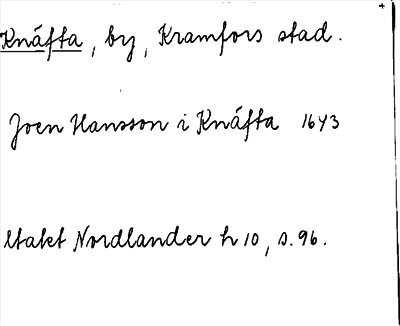 Knäfta, by, Kramfors stad.
Joen Hansson i Knäfta 1643
Utakt Nordlander h 10, s. 96.